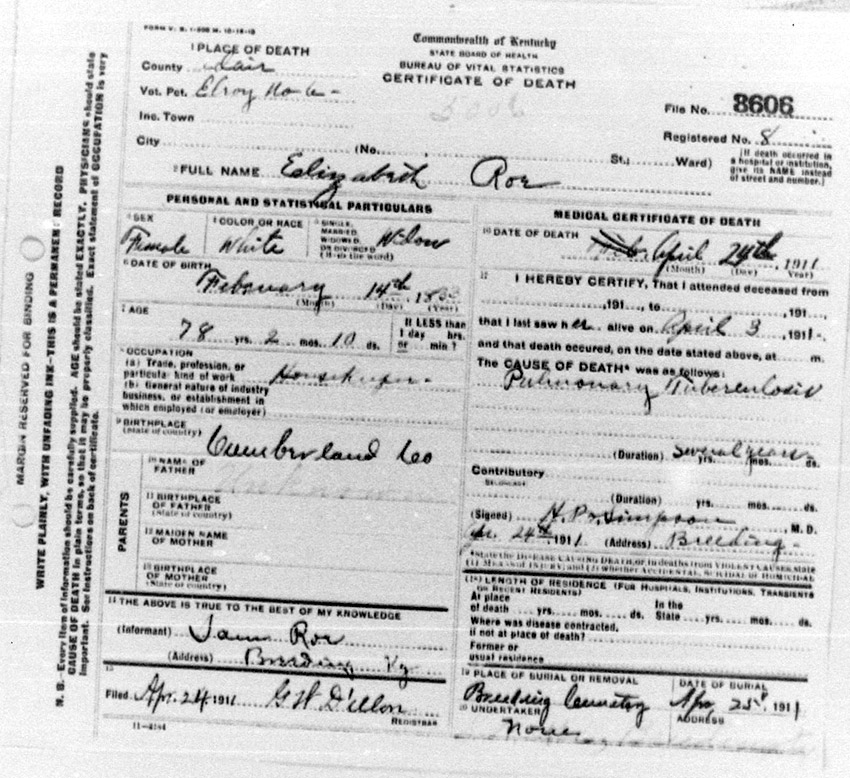 FORM V. S. 1-
Commonwealth of Kentucky
STATE BOARD OF HEALTH
BUREAU OF VITAL STATISTICS
CERTIFICATE OF DEATH
1 PLACE OF DEATH
County Adair
Vot. Pct. Elroy
Inc. Town
City (No. St.; Ward)
File No. 8606
Registered No. 8
[If death occurred in
a hospital or institution,
give its NAME instead
of street and number.]
2 FULL NAME Elizabeth Roe
PERSONAL AND STATISTICAL PARTICULARS
3 SEX Female
4 COLOR OR RACE White
5 SINGLE, MARRIED, WIDOWED, OR DIVORCED (Write the word) Widow
6 DATE OF BIRTH
February 14th, 1833
(Month) (Day) (Year)
7 AGE
78 yrs. 2 mos. 10 ds.
If LESS than
1 day hrs.
or min?
8 OCCUPATION
(a) Trade, profession, or
particular kind of work Housekeeper
(b) General nature of industry
business, or establishment in
which employed (or employer)
9 BIRTHPLACE
(State or country)
Cumberland Co
PARENTS
10 NAME OF
FATHER
Unknown
11 BIRTHPLACE
OF FATHER
(State or country)
12 MAIDEN NAME
OF MOTHER
13 BIRTHPLACE
OF MOTHER
(State or country)
14 THE ABOVE IS TRUE TO THE BEST OF MY KNOWLEDGE
(Informant) Sam Roe
(Address) Breeding Ky
15
Filed Apr. 24 1911 G W Dillon
REGISTRAR
11-4184
MEDICAL CERTIFICATE OF DEATH
16 DATE OF DEATH
April 24th, 1911
(Month) (Day) Year)
17 I HEREBY CERTIFY, That I attended deceased from
, 191 , to , 191 ,
that I last saw her alive on April 3 1911,
and that death occured, on the date stated above, at m.
The CAUSE OF DEATH* was as follows:
Pulmonary Tuberculosis
(Duration) several years yrs. mos. ds.
Contributory
SECONDARY
(Duration) yrs. mos. ds.
(Signed) Simpson, M. D.
Apr. 24th, 1911 (Address) Breeding
*State the DISEASE CAUSING DEATH, or, in deaths from VIOLENT CAUSES, state
(1) MEANS OF INJURY; and (2) whether ACCIDENTAL, SUICIDAL or HOMICIDAL
(18) LENGTH OF RESIDENCE (FOR HOSPITALS, INSTITUTIONS, TRANSIENTS
OR RECENT RESIDENTS)
At place In the
of death yrs. mos. ds. State yrs. mos. ds.
Where was disease contracted,
if not at place of death?
Former or
usual residence
19 PLACE OF BURIAL OR REMOVAL
Breeding Cemetery
DATE OF BURIAL
Apr, 25th 1911
20 UNDERTAKER
None
ADDRESS
MARGIN RESERVED FOR BINDING
WRITE PLAINLY, WITH UNFADING INK—THIS IS A PERMANENT RECORD
N. B.—Every item of information should be carefully supplied. AGE should be stated EXACTLY. PHYSICIANS should state
CAUSE OF DEATH in plain terms, so that it may be properly classified. Exact statement of OCCUPATION is very
important. See instructions on back of certificate.